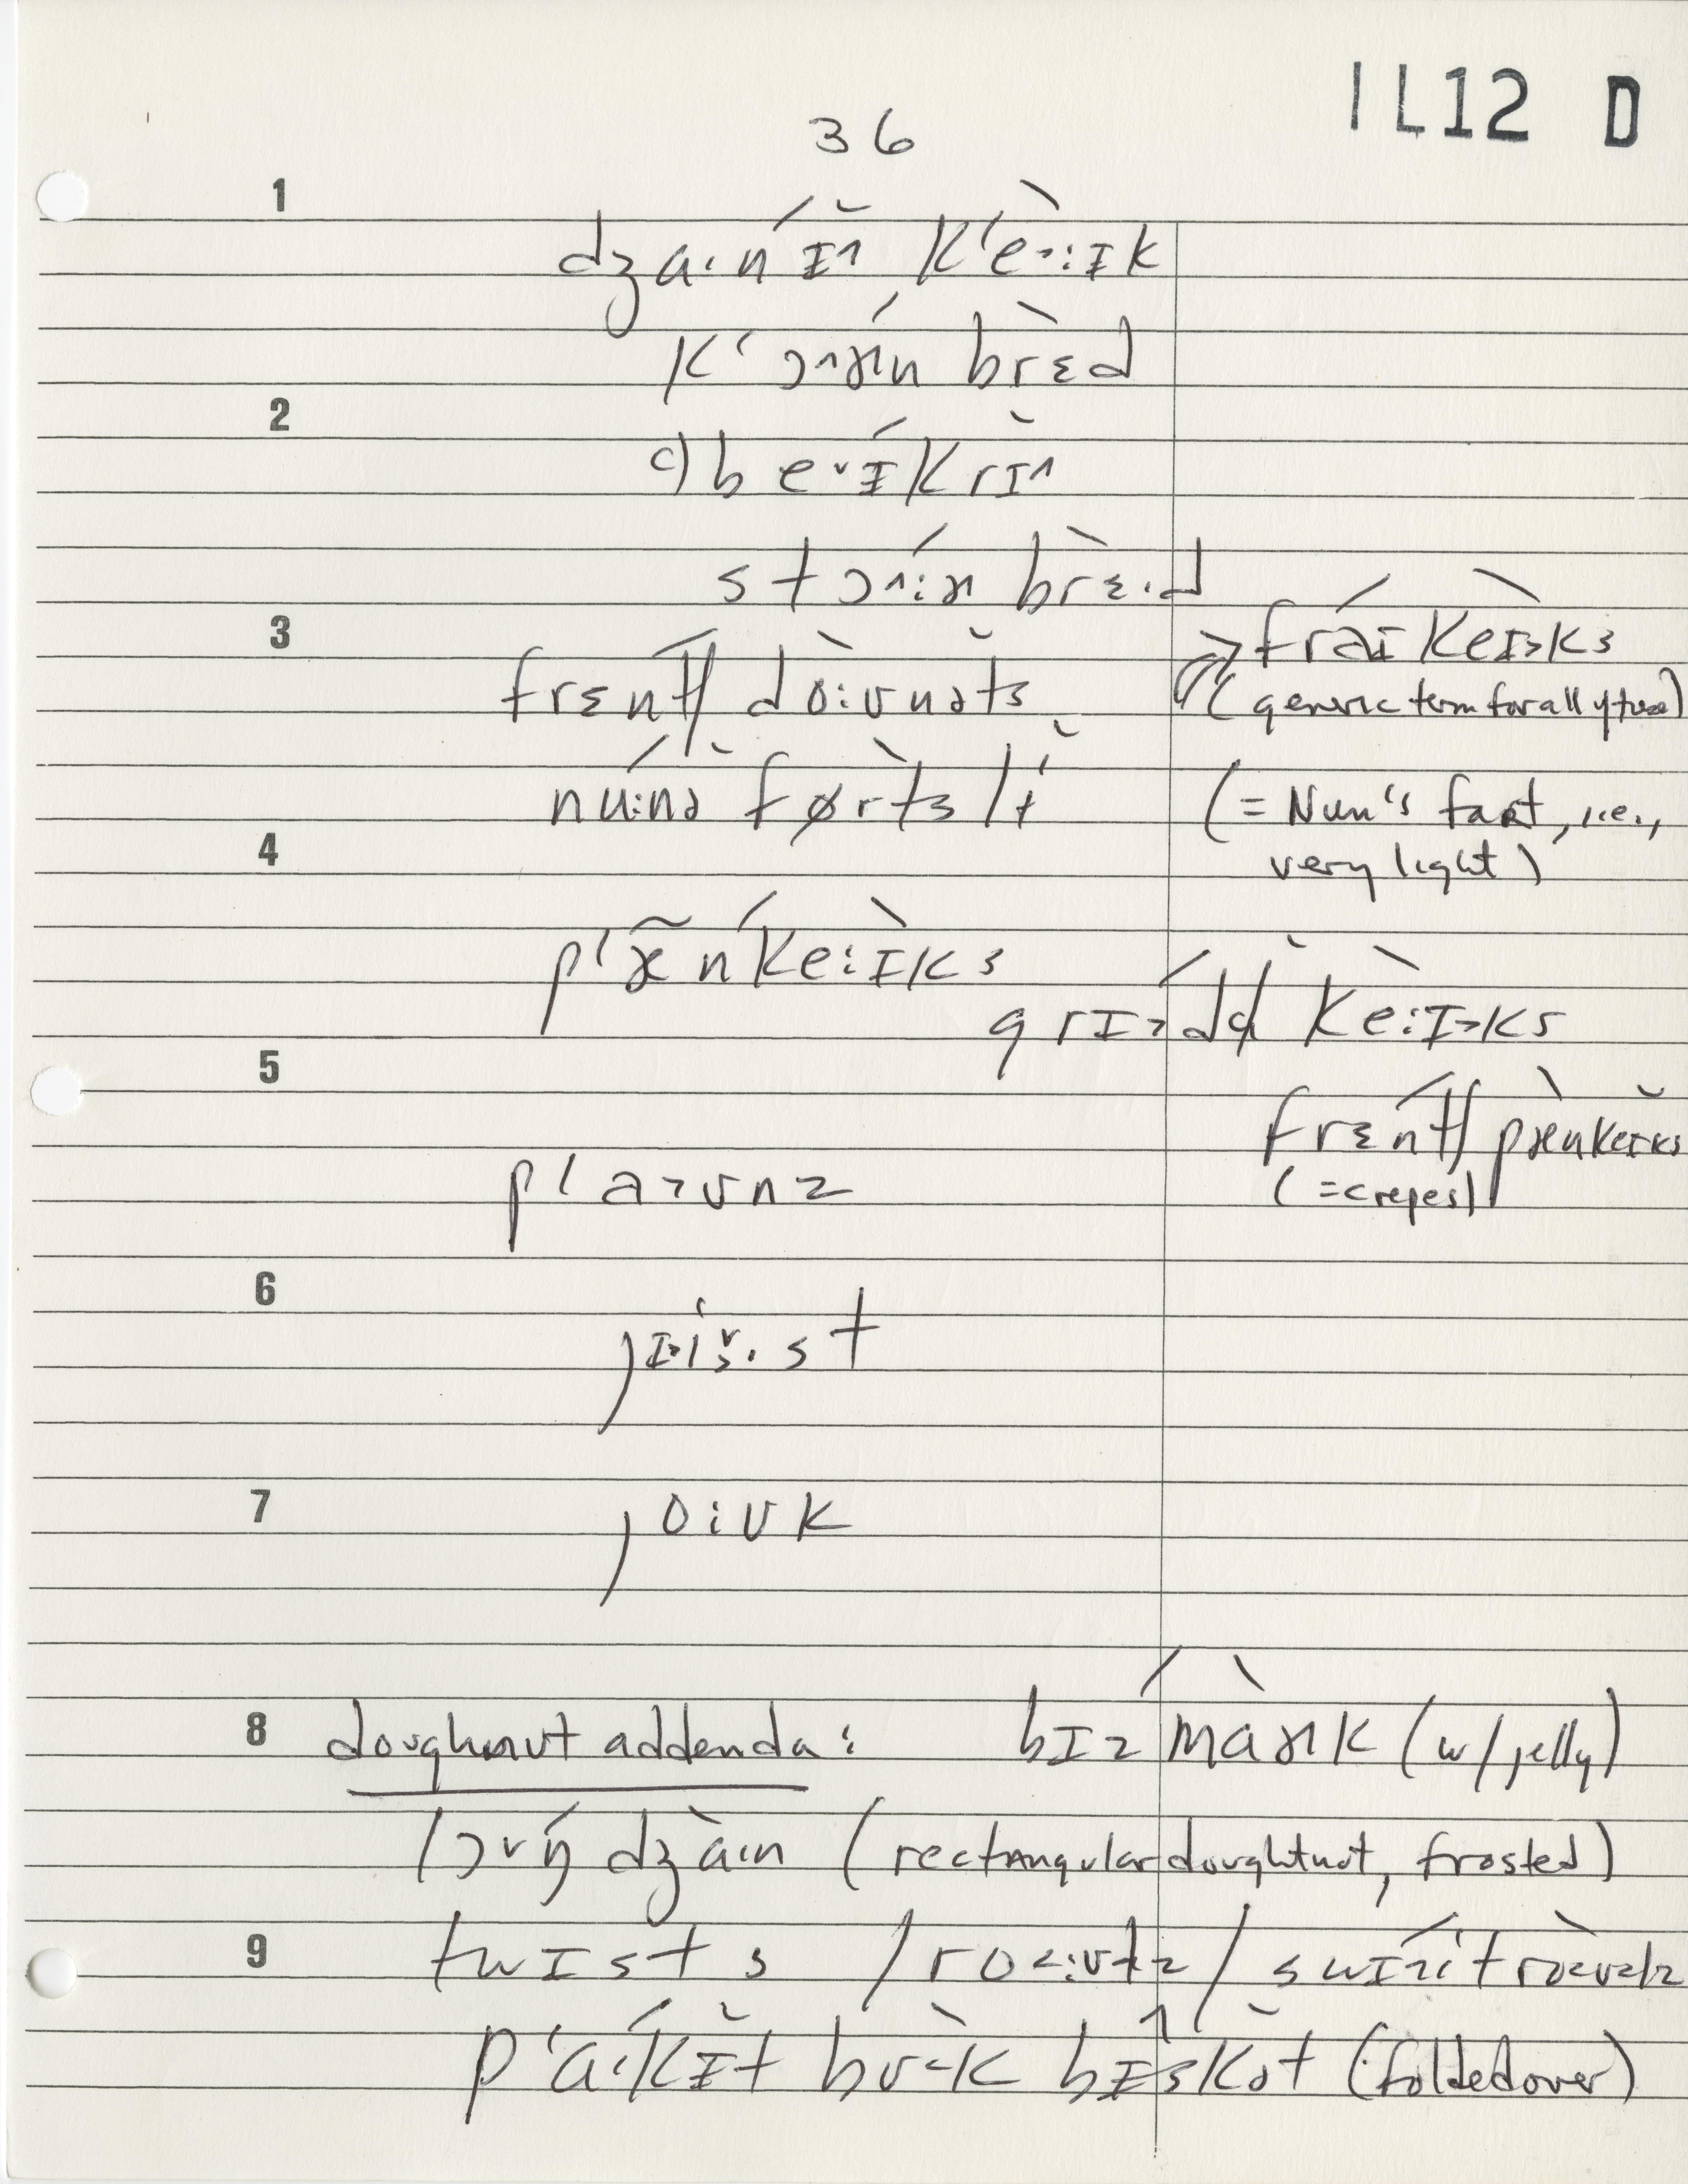 IL12 D
36
1
dʒaˑnɪ́n̆ kʻeˑɪk̀
kʻɔɚń brɛ̀d
2
ə beˑɪ́krɪ̆
stɔˑɚ́ brɛ̀ˑd
3
frɛ́ntʃ dòːʊnə̆ts
→ fráɪ keɪks
(generic term for all of these)
núːnə̆ fø̀rtslĭ
(= Nun's fart, i.e.,
very light)
4
pʻæ̃ńkeːɪ̀ks
grɪ́dɫ̆ kèːɪks
5
frɛ́ntʃ pæ̀nkeɪ̆ks
(=crepes)
pʻaʊnz
6
jɪiˑst
7
joːʊk
8
doughnut addenda:
bɪzmɑɚk (w/ jelly)
lɔŋ́ dʒɑ̀n (rectangular doughtnut, frosted)
9
twɪsts / roːʊlz / swíːt ròʊlz
pʻɑ́kɪ̆t bʊ̀k bɪ́skə̆t (folded over)